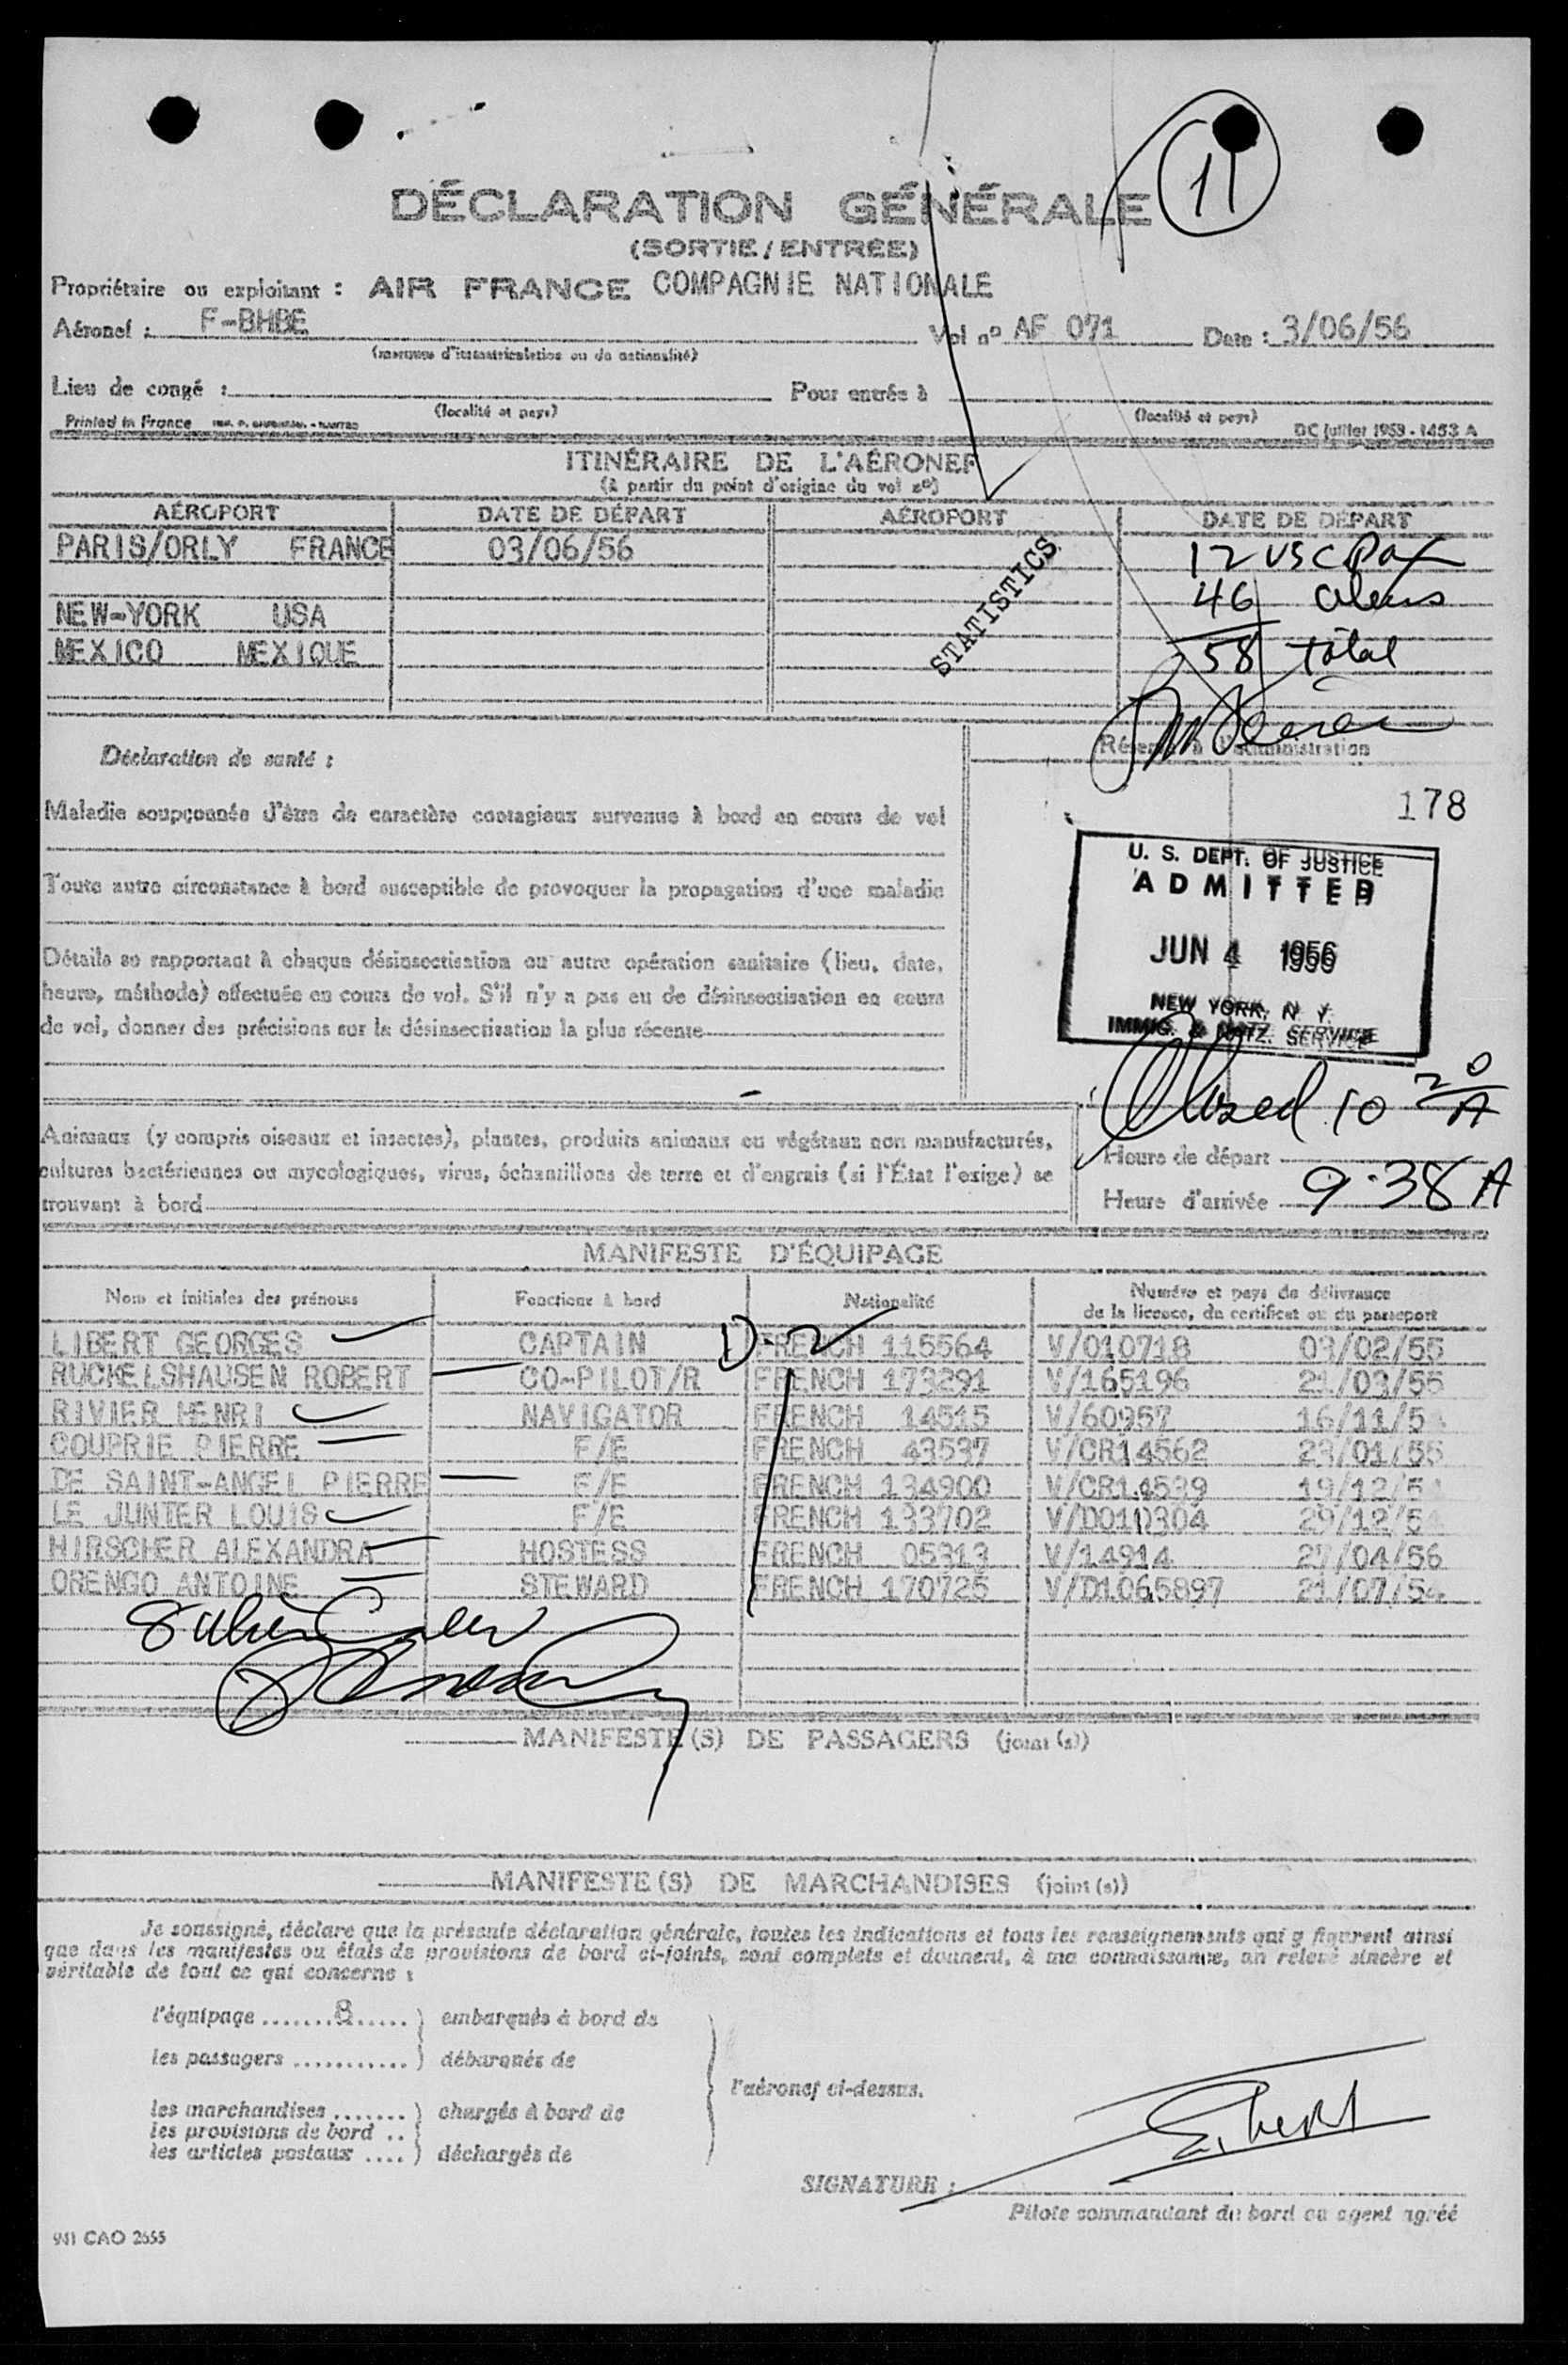 11
DÉCLARATION GÉNÉRALE
(SORTIE / ENTRÉE)
Propriétaire ou exploitant : AIR FRANCE COMPAGNIE NATIONALE
Aéronef : F-BHBE Vol nº AF 071 Date : 3/06/56
(marques d'immatriculation ou de nationalité)
Lieu de congé : Pour entrée à
(localité et pays) (localité et pays)
Printed in France DC juillet 1953 - 1453 A
ITINÉRAIRE DE L'AÉRONEF
(à partir du point d'origine du vol nº)
AÉROPORT DATE DE DÉPART AÉROPORT DATE DE DÉPART
PARIS/ORLY FRANCE 03/06/56 12 USC Pax
46 aliens
NEW-YORK USA
MEXICO MEXIQUE 58 total
STATISTICS
Déclaration de santé : Réservé à l'administration
178
Maladie soupçonnée d'être de caractère contagieux survenue à bord en cours de vol
Toute autre circonstance à bord susceptible de provoquer la propagation d'une maladie
Détails se rapportant à chaque désinsectisation ou autre opération sanitaire (lieu, date,
heure, méthode) effectuée en cours de vol. S'il n'y a pas eu de désinsectisation en cours
de vol, donner des précisions sur la désinsectisation la plus récente
U. S. DEPT. OF JUSTICE
ADMITTED
JUN 4 1956
NEW YORK, N. Y.
IMMIG. & NATZ. SERVICE
Closed 10 20 A
Animaux (y compris oiseaux et insectes), plantes, produits animaux ou végétaux non manufacturés,
cultures bactériennes ou mycologiques, virus, échantillons de terre et d'engrais (si l'État l'exige) se
trouvant à bord
Heure de départ
Heure d'arrivée 9.38 A
MANIFESTE D'ÉQUIPAGE
Nom et initiales des prénoms Fonctions à bord Nationalité Numéro et pays de délivrance
de la licence, du certificat ou du passeport
LIBERT GEORGES CAPTAIN D-2 FRENCH 115564 V/010718 03/02/55
RUCKELSHAUSEN ROBERT CO-PILOT/R FRENCH 173291 V/165196 21/03/55
RIVIER HENRI NAVIGATOR FRENCH 14515 V/60957 16/11/5
COUPRIE PIERRE F/E FRENCH 43537 V/CR14562 23/01/55
DE SAINT-ANGEL PIERRE F/E FRENCH 134900 V/CR14539 19/12/5
LE JUNTER LOUIS F/E FRENCH 133702 V/D010304 29/12/5
HIRSCHER ALEXANDRA HOSTESS FRENCH 05313 V/14914 27/04/56
ORENGO ANTOINE STEWARD FRENCH 170725 V/D1065897 21/07/5
8 alien Crew
MANIFESTE (S) DE PASSAGERS (joint (s))
MANIFESTE (S) DE MARCHANDISES (joint (s))
Je soussigné, déclare que la présente déclaration générale, toutes les indications et tous les renseignements qui y figurent ainsi
que dans les manifestes ou états de provisions de bord ci-joints, sont complets et donnent, à ma connaissance, un relevé sincère et
véritable de tout ce qui concerne :
l'équipage .......8...... ) embarqués à bord de
les passagers ........... ) débarqués de
l'aéronef ci-dessus.
les marchandises ....... ) chargés à bord de
les provisions de bord .. )
les articles postaux .... ) déchargés de
SIGNATURE :
Pilote commandant de bord ou agent agréé
941 CAO 2555